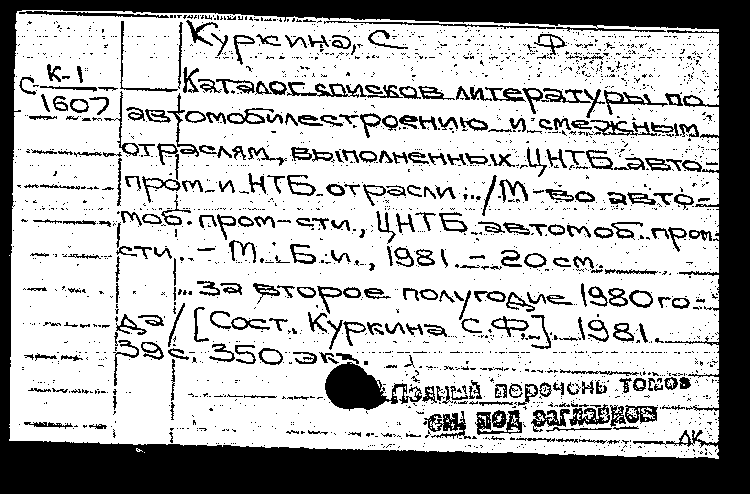 Куркина, С Ф
С К-1
1607
Каталог списков литературы по
автомобилестроению и смежным
отраслям, выполненных ЦНТБ авто-
пром. и НТБ отрасли... / М-во авто-
моб. пром-сти., ЦНТБ автомоб. пром-
сти. – М. : Б. и., 1981. – 20 см.
...за второе полугодие 1980 го-
да / [Сост. Куркина С.Ф.]. 1981.
39 с. 350 экз.
Полный перечень томов
см. под заглавием
ЛК